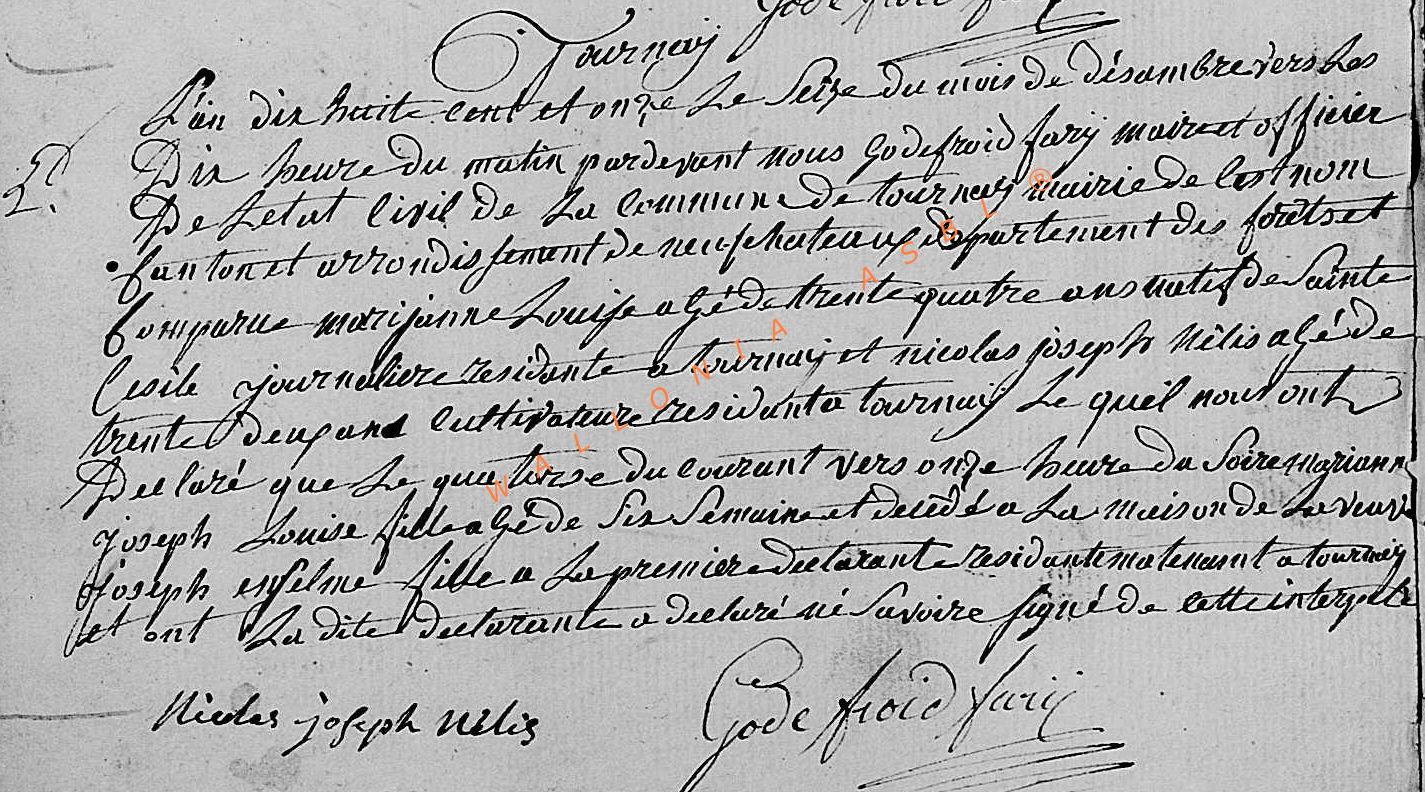 Gode froid farij
Tournaij
L'an dix huite cent et onze Le Seize du mois de désambre vers Les
2d
Dix heure du matin pardevant nous Godefroid farij maire et officier
De Letat Civil de La Commune de tournaij mairie de Cest nom
Canton et arrondissement de neufchateaux département des forêts et
Comparue marijanne Louise agé de trente quatre ans natif de Sainte
Cesile journaliere residante a tournaij et nicolas joseph Nélis agé de
trente deux ans cultivateure residant a tournaij Le quel nous ont
Declaré que Le quatorse du courant vers onze heure du Soire mariann
joseph Louise fille agé de Six Semaine et decédé a La maison de La veuve
joseph enselme fille a La premiere declarante residante matenant a tournaij
et ont La dite declarante a declaré né Savoire signé de cette
Nicolas joseph Nélis
Gode froid farij
WALLONIA ASBL ®